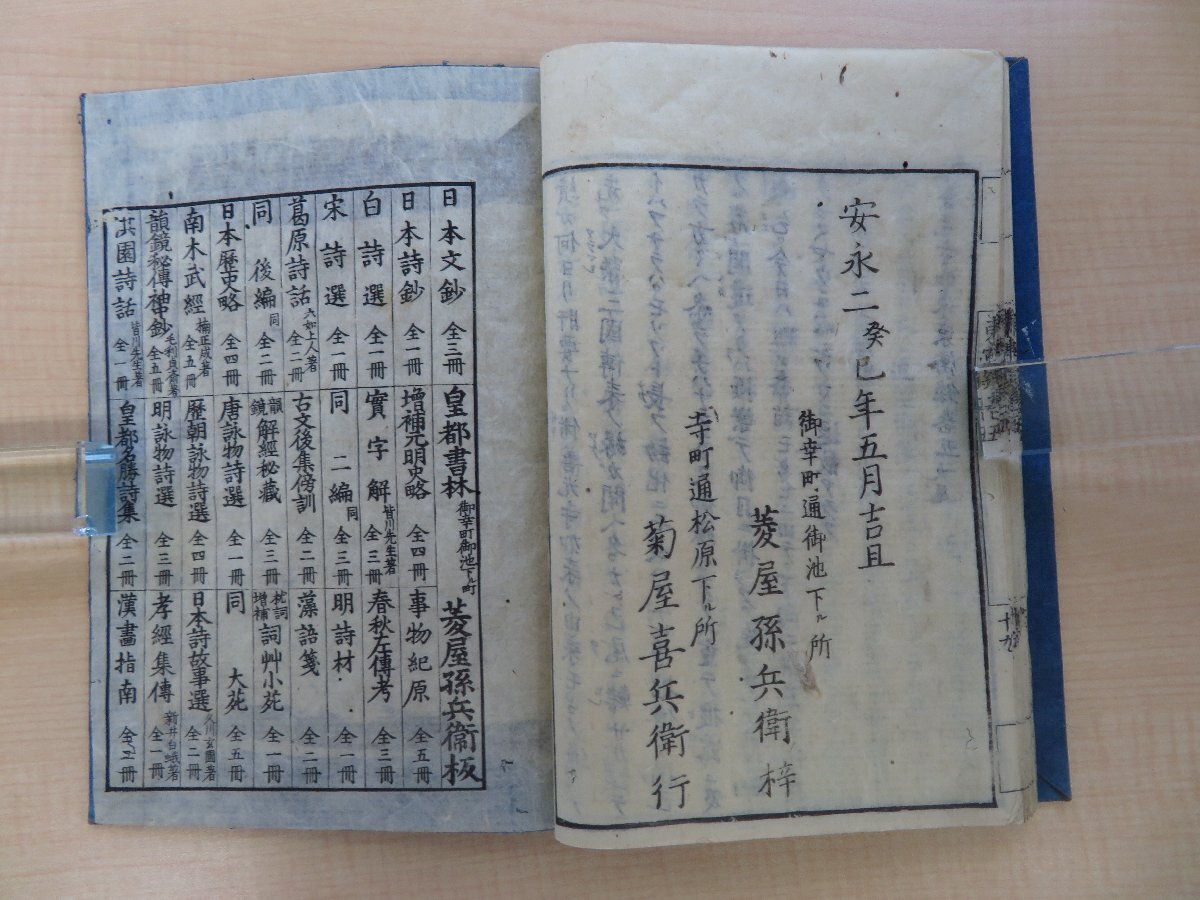 安永二癸巳年五月吉旦
御幸町通御池下ル所
菱屋孫兵衛梓
寺町通松原下ル所
菊屋喜兵衛行
十九
日本文鈔 全三冊
皇都書林 御幸町御池下ル町 菱屋孫兵衛板
日本詩鈔 全一冊
増補元明史略 全四冊
事物紀原 全五冊
白詩選 全一冊
實字解 皆川先生著 全三冊
春秋左傳考 全三冊
宋詩選 全一冊
同二編 同 全三冊
明詩材 全一冊
葛原詩話 六如上人著 全二冊
古文後集傍訓 全二冊
藻語箋 全二冊
同後編 同 全二冊
韻鏡解經秘藏 全三冊
枕詞増補詞艸小苑 全一冊
日本歷史略 全四冊
唐詠物詩選 全一冊
同大苑 全五冊
南木武經 楠正成著 全五冊
歷朝詠物詩選 全四冊
日本詩故事選 全二冊
韻鏡秘傳神鈔 毛利貞齋著 全五冊
明詠物詩選 全三冊
孝經集傳 新井白蛾著 全一冊
淇園詩話 皆川先生著 全一冊
皇都名勝詩集 全二冊
漢畫指南 全二冊